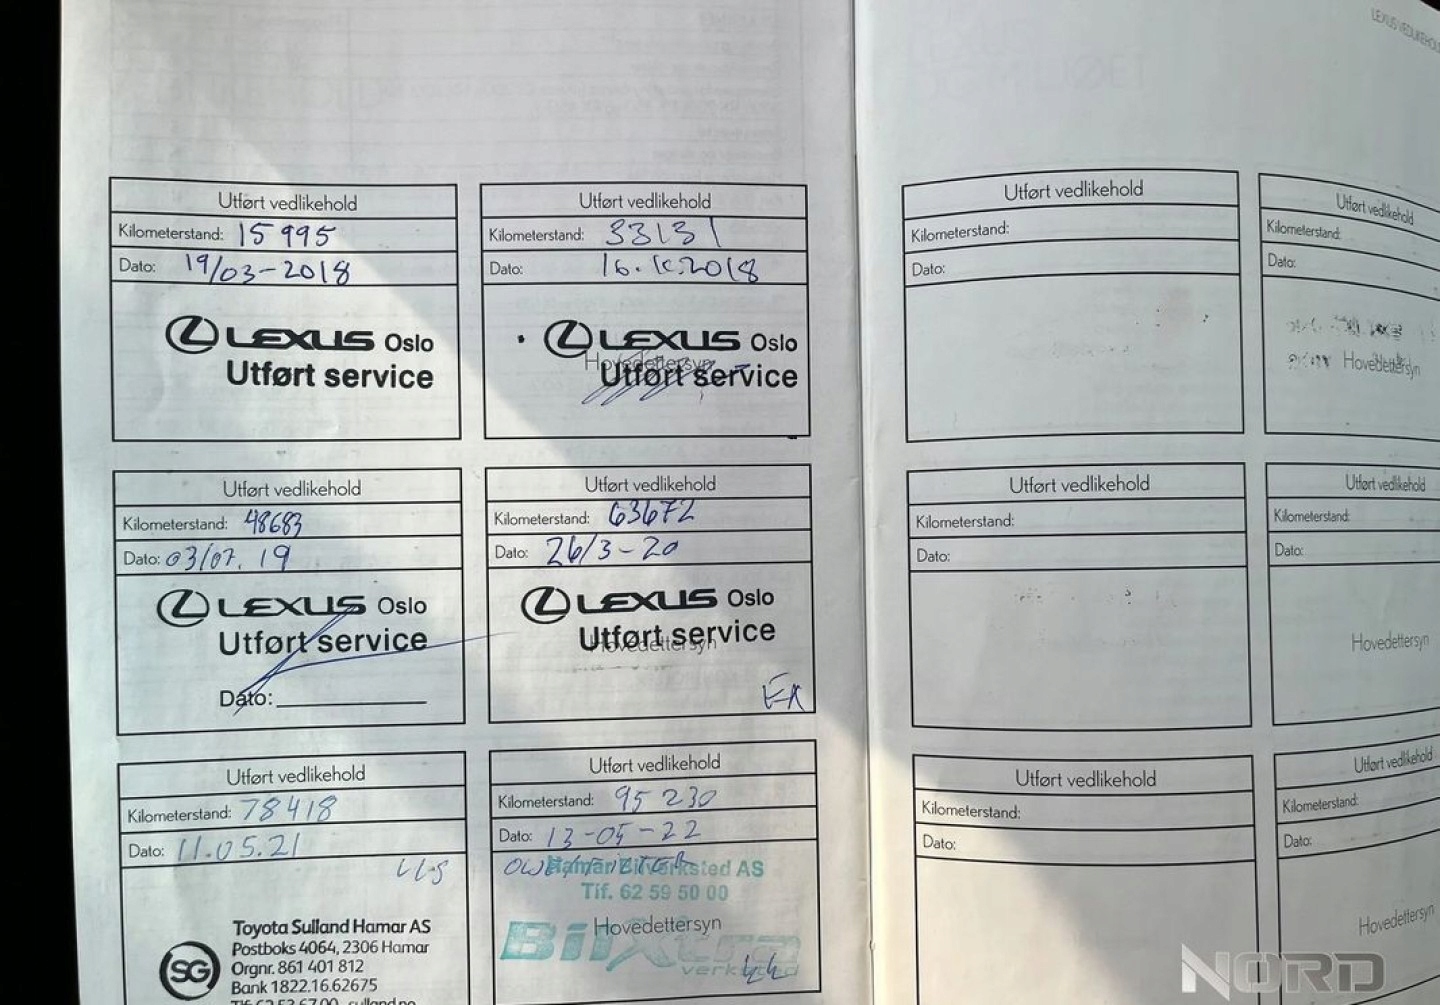 LEXUS VEDLIKEHOL
Utført vedlikehold
Kilometerstand: 15 995
Dato: 19/03-2018
LEXUS Oslo
Utført service
Utført vedlikehold
Kilometerstand: 33131
Dato: 16.10.2018
LEXUS Oslo
Hovedettersyn
Utført service
Utført vedlikehold
Kilometerstand:
Dato:
Utført vedlikehold
Kilometerstand:
Dato:
Hovedettersyn
Utført vedlikehold
Kilometerstand: 48683
Dato: 03/07.19
LEXUS Oslo
Utført service
Dato:
Utført vedlikehold
Kilometerstand: 63672
Dato: 26/3-20
LEXUS Oslo
Utført service
Hovedettersyn
Utført vedlikehold
Kilometerstand:
Dato:
Utført vedlikehold
Kilometerstand:
Dato:
Hovedettersyn
Utført vedlikehold
Kilometerstand: 78418
Dato: 11.05.21
Toyota Sulland Hamar AS
Postboks 4064, 2306 Hamar
Orgnr. 861 401 812
Bank 1822.16.62675
SG
Tlf 62 53 67 00 sulland.no
Utført vedlikehold
Kilometerstand: 95 230
Dato: 13-05-22
Hamar Bilverksted AS
Tlf. 62 59 50 00
Hovedettersyn
BilXtra
verksted
Utført vedlikehold
Kilometerstand:
Dato:
Utført vedlikehold
Kilometerstand:
Dato:
Hovedettersyn
NORD